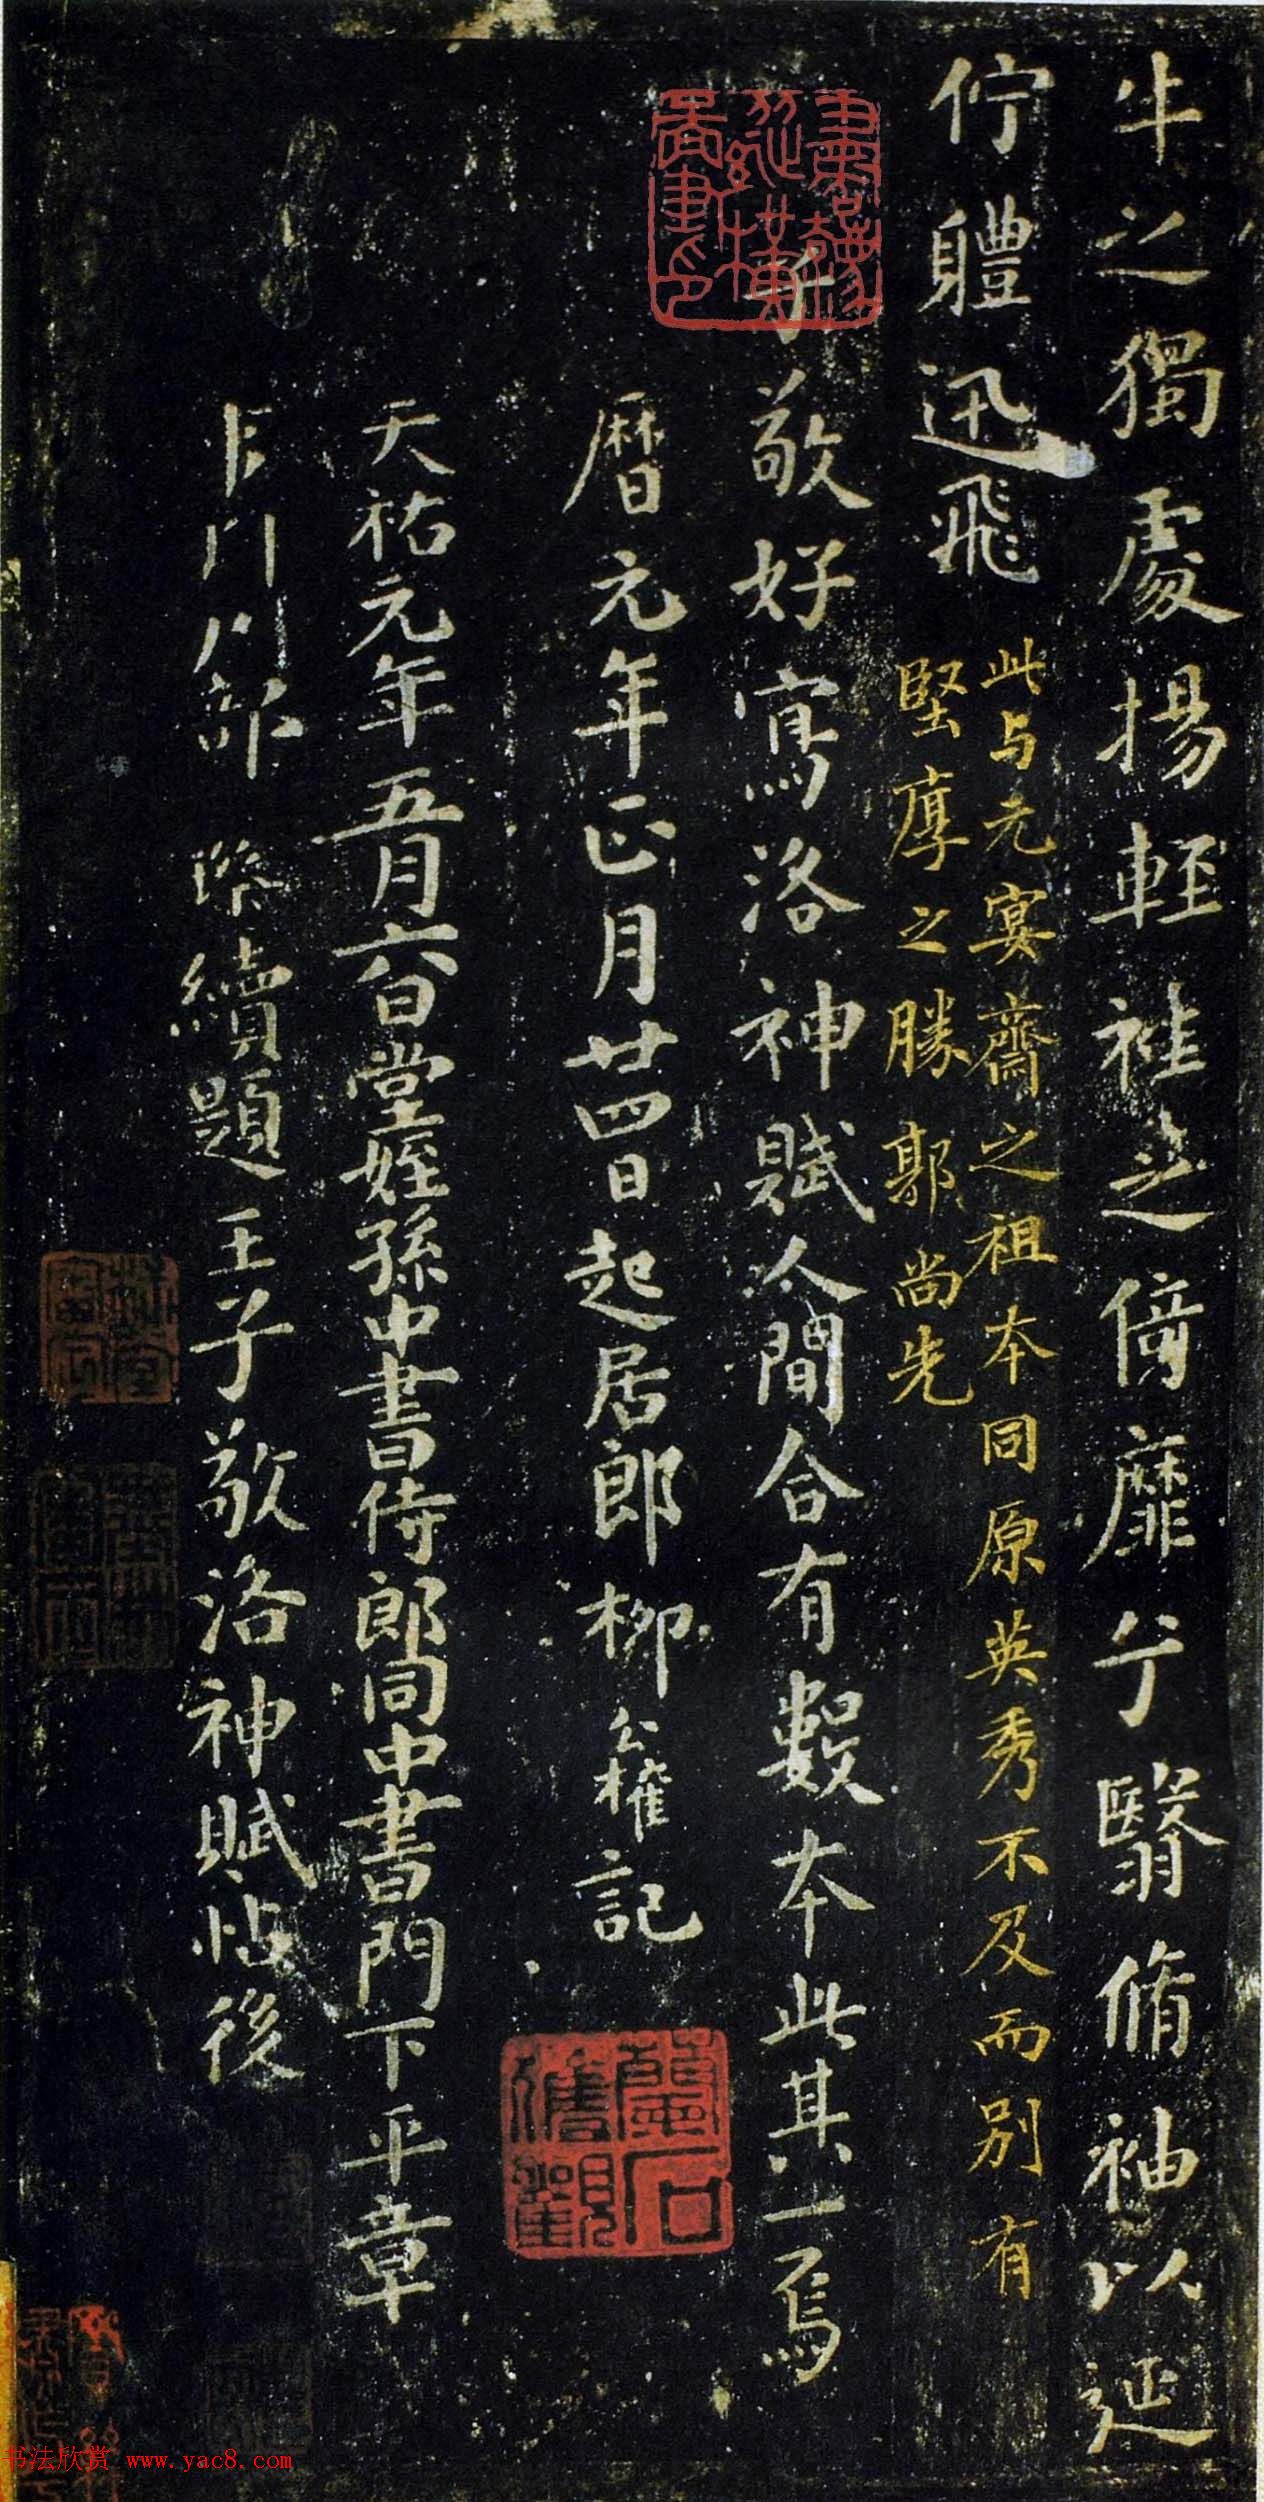 牛之獨處揚輕袿之倚靡兮翳脩袖以延
佇軆迅飛
此与元宴齋之祖本同原英秀不及而别有
堅厚之勝郭尚先
子敬好寫洛神賦人間合有數本此其一焉
曆元年正月廿四日起居郎柳公權記
天祐元年五月六日堂姪孫中書侍郎同中書門下平章
部
續題王子敬洛神賦帖後
書法欣赏 www.yac8.com